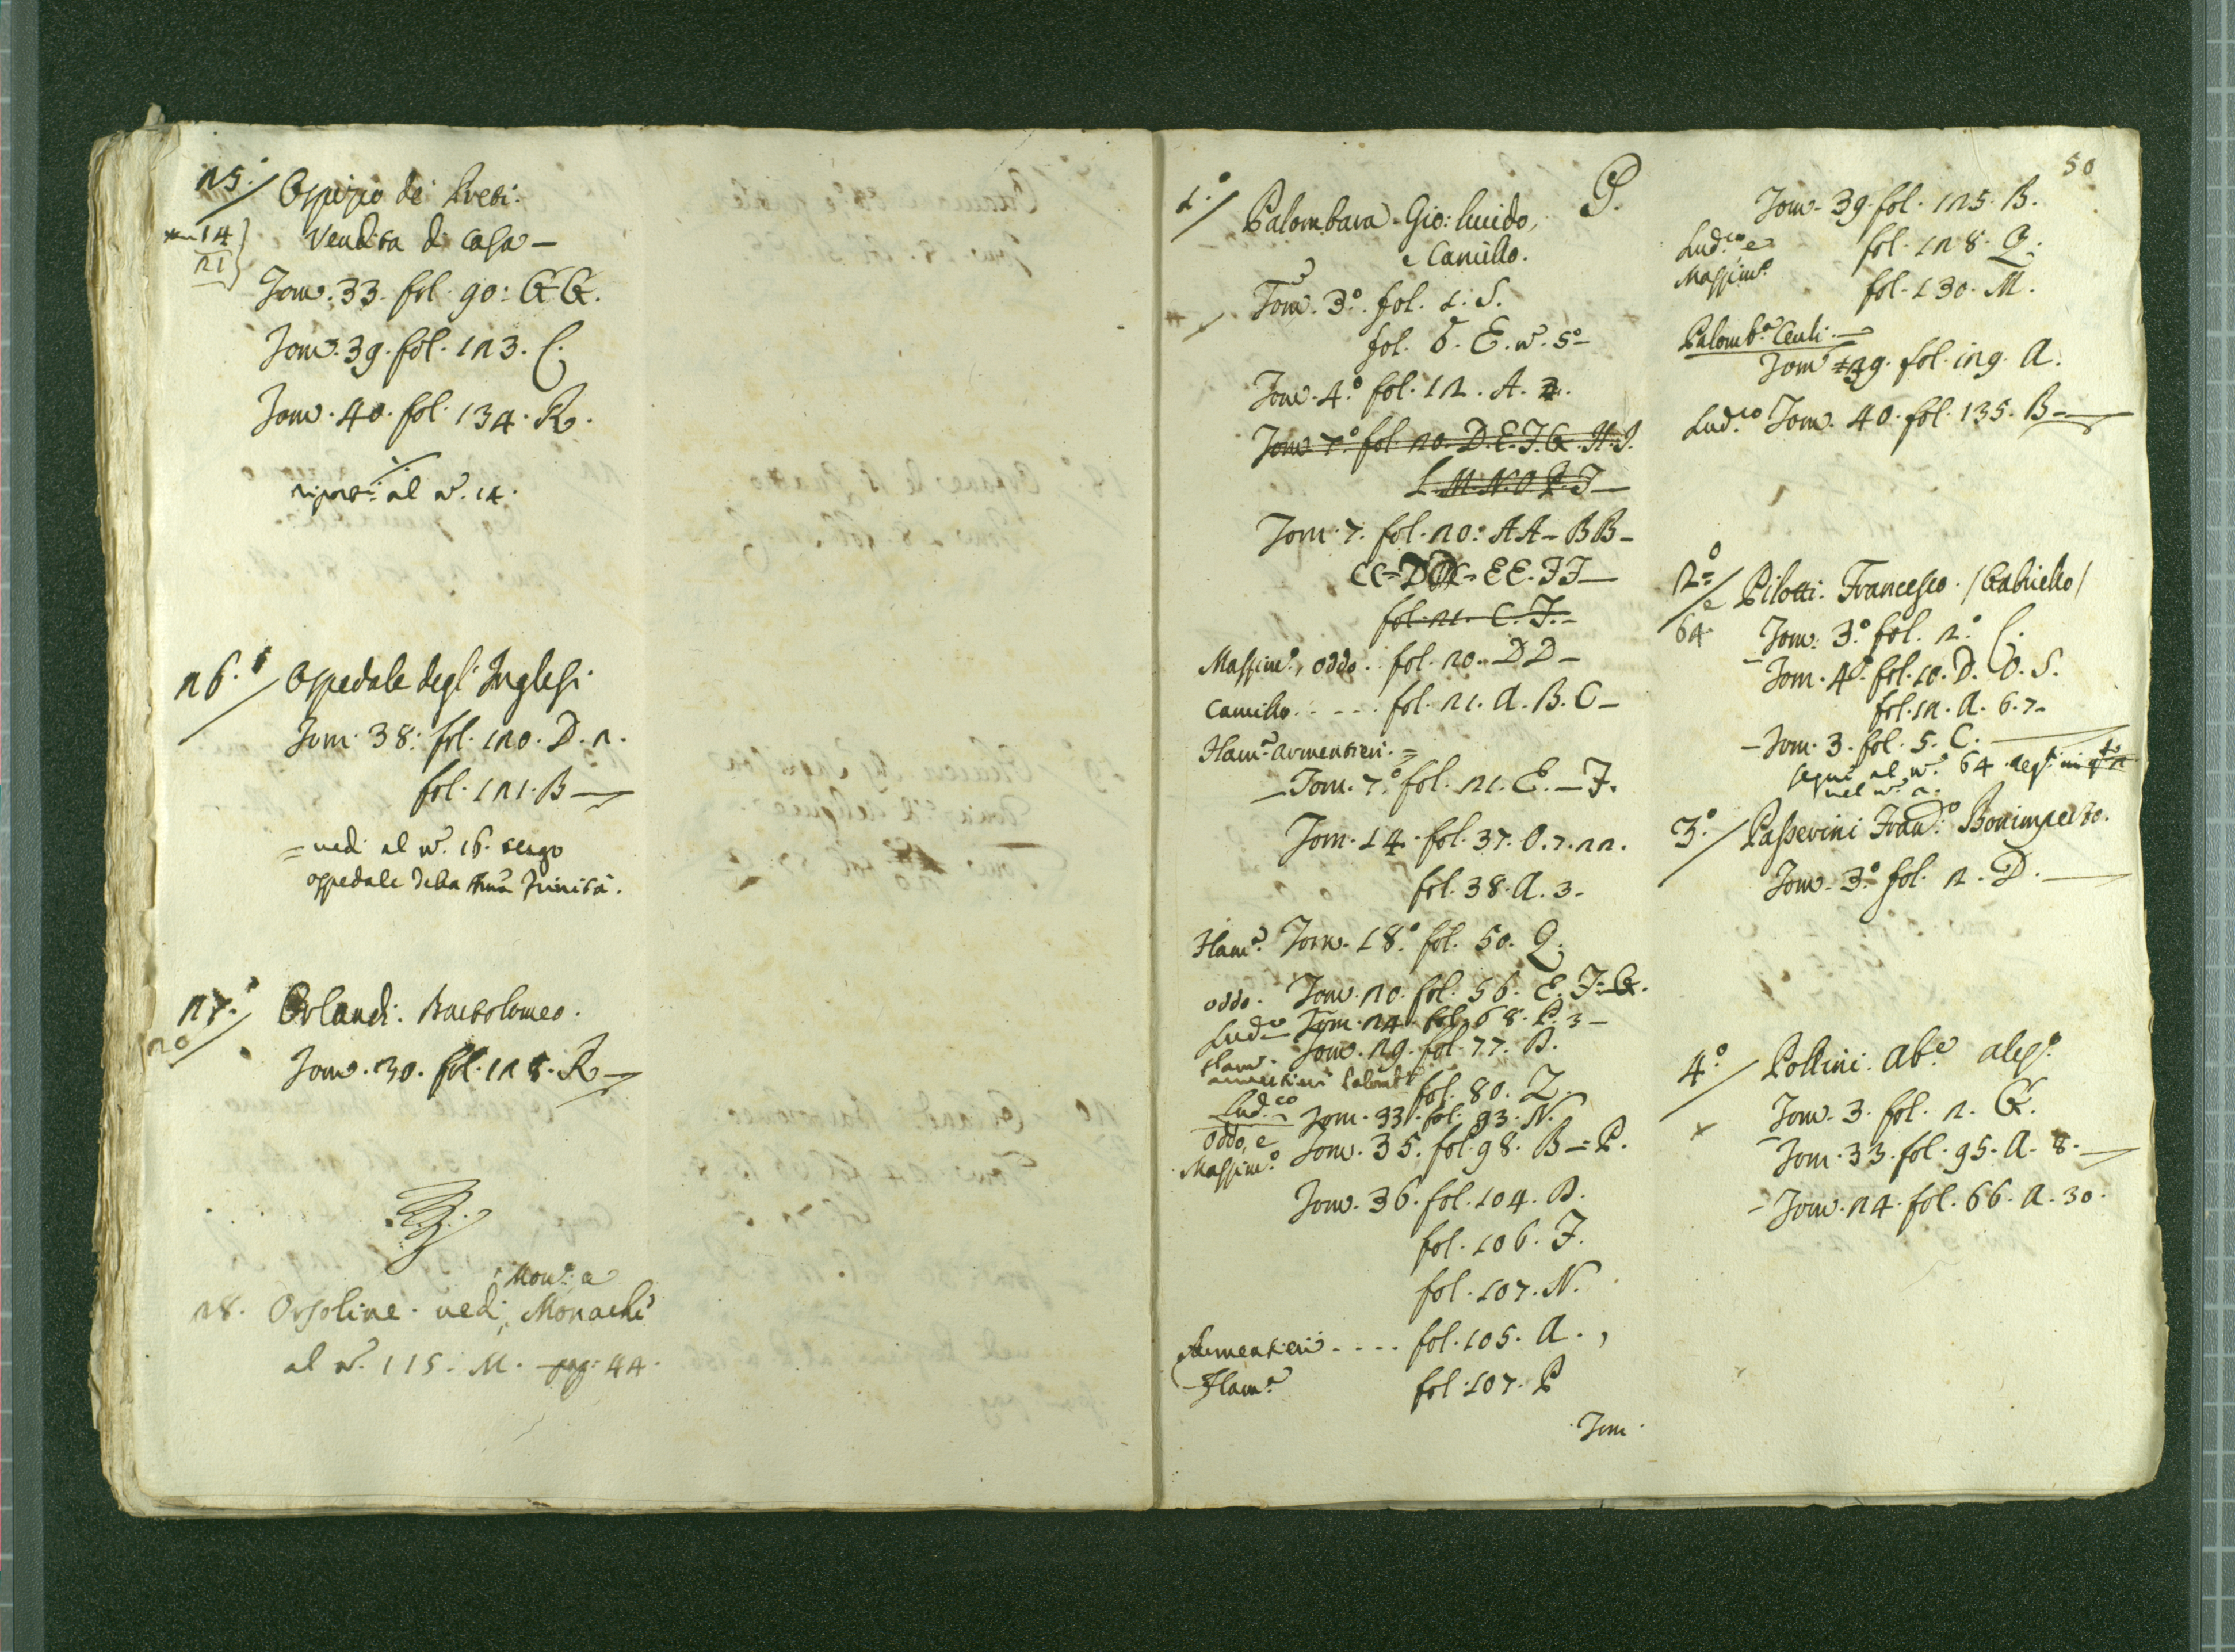 25.° Ospizio de Preti.
14 Vendita di Casa —
21
Tom. 33. fol. 90: GG.
Tom. 39. fol. 123. C.
Tom. 40. fol. 134. R.
al n. 14.
26. Ospedale degl' Inglesi.
Tom. 38. fol. 120. D. 2.
fol. 121. B —
= vedi al n. 16. tergo
ospedale della Trinità.
27. Orlandi. Bartolomeo.
20
Tom. 30. fol. 128. R —
Mon.e a
28. Orsoline. vedi Monache
al n. 115. M. pag. 44.
50
P.
1.° Palombara. Gio: Guido,
e Camillo.
Tom. 3.° fol. 1. S.
fol. 6. E. n. 5.°
Tom. 4.° fol. 12. A.
Tom. 7.° fol. 20. D. E. F. G. H. I.
L. M. N. O. P. T —
Tom. 7. fol. 20: AA — BB —
CC — EE. FF —
fol. 21. C. F. —
Massim.°, Oddo. fol. 20. DD —
Camillo . - - . fol. 21. A. B. C —
Flam.a Armentieri. =
— Tom. 7.° fol. 21. E. — F.
Tom. 14. fol. 37. O. 7. 22.
fol. 38. A. 3 —
Flam.a Tom. 18.° fol. 50. Q.
Oddo. Tom. 20. fol. 56. E. F. G.
Lud.co Tom. 24. fol. 68. P. 3 —
Flam.a Tom. 29. fol. 77. B.
Armentieri Palomb.a fol. 80. Z.
Lud.co Tom. 33. fol. 93. N.
Oddo, e Tom. 35. fol. 98. B — P.
Massim.°
Tom. 36. fol. 104. B.
fol. 106. F.
fol. 107. N.
Armentieri - - - - fol. 105. A.
Flam.a fol. 107. P
Tom.
Tom. 39. fol. 125. B.
Lud.co e fol. 128. Q.
Massim.°
fol. 130. M.
Palomb.a Ceuli. —
Tom. 39. fol. 129. A.
Lud.co Tom. 40. fol. 135. B —
2.° Pilotti. Francesco. / Gabriello /
e
64. Tom. 3.° fol. 2.° C.
Tom. 4.° fol. 10. D. O. S.
fol. 12. A. 6. 7 —
— Tom. 3. fol. 5. C. —
segue al n.° 64
nel n. 2.
3.° Passerini Fran.co Bonimperto.
Tom. 3.° fol. 2. D. —
4.° Pollini. Ab.e
Tom. 3. fol. 2. G.
Tom. 33. fol. 95. A. 8. —
— Tom. 24. fol. 66. A. 30.